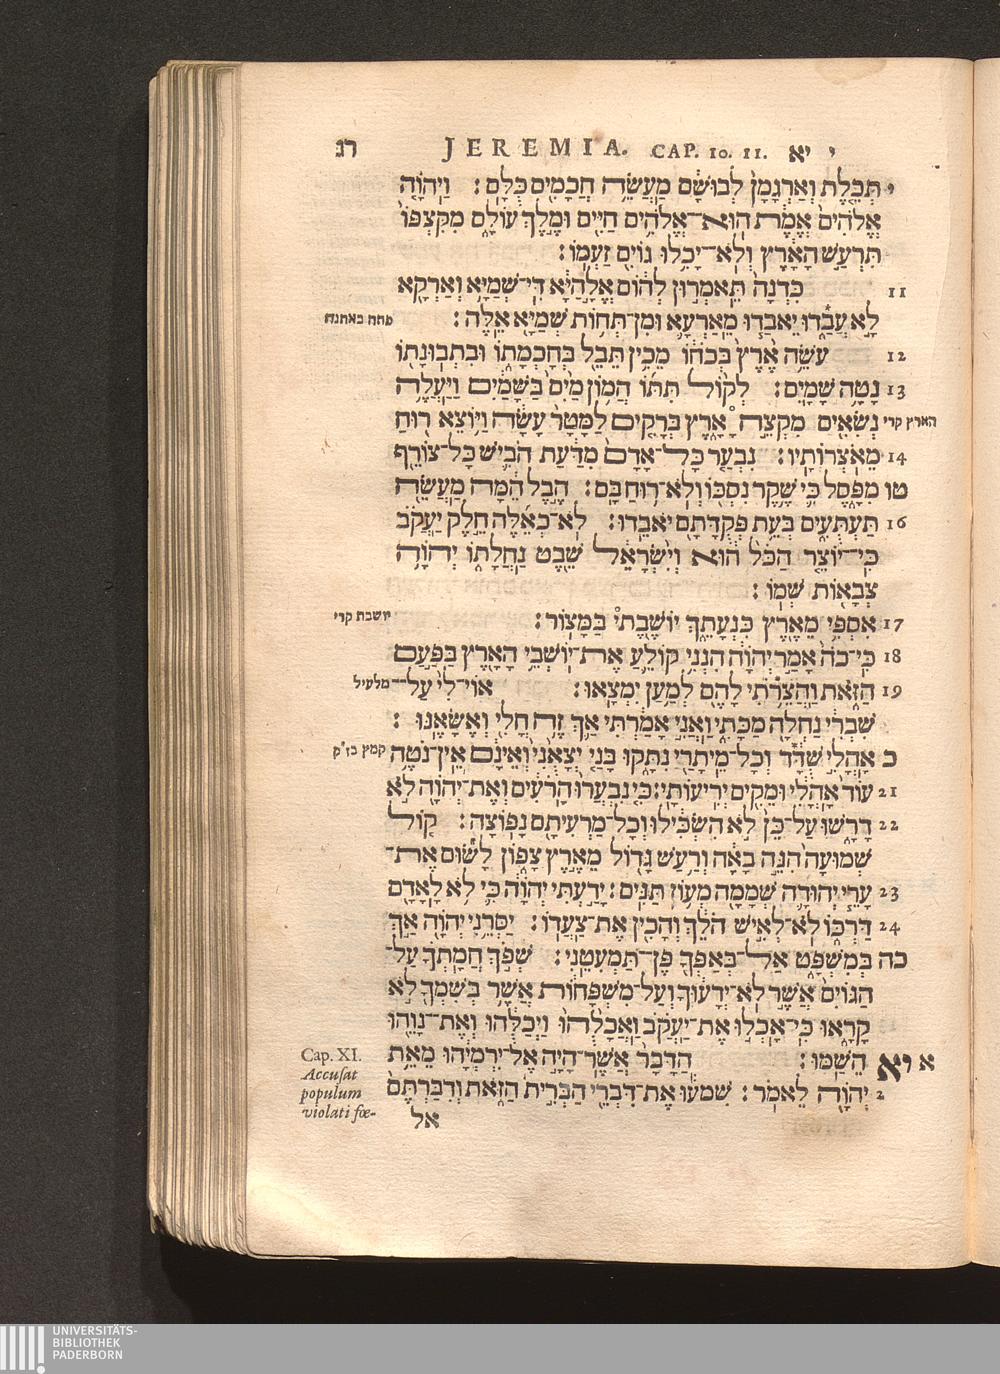 רג JEREMIA. CAP. 10. 11. י יא
י תְּכֵלֶת וְאַרְגָּמָן לְבוּשָׁם מַעֲשֵׂה חֲכָמִים כֻּלָּם׃ וַיהוָֹה
אֱלֹהִים אֱמֶת הוּא־אֱלֹהִים חַיִּים וּמֶלֶךְ עוֹלָם מִקִּצְפּוֹ
תִּרְעַשׁ הָאָרֶץ וְלֹא־יָכִלוּ גוֹיִם זַעְמוֹ׃
11 כִּדְנָה תֵּאמְרוּן לְהוֹם אֱלָהַיָּא דִּי־שְׁמַיָּא וְאַרְקָא
לָא עֲבַדוּ יֵאבַדוּ מֵאַרְעָא וּמִן־תְּחוֹת שְׁמַיָּא אֵלֶּה׃ פתח באתנח
12 עֹשֵׂה אֶרֶץ בְּכֹחוֹ מֵכִין תֵּבֵל בְּחָכְמָתוֹ וּבִתְבוּנָתוֹ
13 נָטָה שָׁמָיִם׃ לְקוֹל תִּתּוֹ הֲמוֹן מַיִם בַּשָּׁמַיִם וַיַּעֲלֶה
נְשִׂאִים מִקְצֵה אָרֶץ בְּרָקִים לַמָּטָר עָשָׂה וַיּוֹצֵא רוּחַ הארץ קרי
14 מֵאֹצְרוֹתָיו׃ נִבְעַר כָּל־אָדָם מִדַּעַת הֹבִישׁ כָּל־צוֹרֵף
טו מִפָּסֶל כִּי שֶׁקֶר נִסְכּוֹ וְלֹא־רוּחַ בָּם׃ הֶבֶל הֵמָּה מַעֲשֵׂה
16 תַּעְתֻּעִים בְּעֵת פְּקֻדָּתָם יֹאבֵדוּ׃ לֹא־כְאֵלֶּה חֵלֶק יַעֲקֹב
כִּי־יוֹצֵר הַכֹּל הוּא וְיִשְׂרָאֵל שֵׁבֶט נַחֲלָתוֹ יְהוָֹה
צְבָאוֹת שְׁמוֹ׃
17 אִסְפִּי מֵאֶרֶץ כִּנְעָתֵךְ יוֹשֶׁבֶתי בַּמָּצוֹר׃ יושבת קרי
18 כִּי־כֹה אָמַר יְהוָֹה הִנְנִי קוֹלֵעַ אֶת־יוֹשְׁבֵי הָאָרֶץ בַּפַּעַם
19 הַזֹּאת וַהֲצֵרֹתִי לָהֶם לְמַעַן יִמְצָאוּ׃ אוֹי־לִי עַל־ מלעיל
שִׁבְרִי נַחְלָה מַכָּתִי וַאֲנִי אָמַרְתִּי אַךְ זֶה חֳלִי וְאֶשָּׂאֶנּוּ׃
כ אָהֳלִי שֻׁדָּד וְכָל־מֵיתָרַי נִתָּקוּ בָּנַי יְצָאֻנִי וְאֵינָם אֵין־נֹטֶה קמץ בז"ק
21 עוֹד אָהֳלִי וּמֵקִים יְרִיעוֹתָי׃ כִּי נִבְעֲרוּ הָרֹעִים וְאֶת־יְהוָֹה לֹא
22 דָרָשׁוּ עַל־כֵּן לֹא הִשְׂכִּילוּ וְכָל־מַרְעִיתָם נָפוֹצָה׃ קוֹל
שְׁמוּעָה הִנֵּה בָאָה וְרַעַשׁ גָּדוֹל מֵאֶרֶץ צָפוֹן לָשׂוּם אֶת־
23 עָרֵי יְהוּדָה שְׁמָמָה מְעוֹן תַּנִּים׃ יָדַעְתִּי יְהוָֹה כִּי לֹא לָאָדָם
24 דַּרְכּוֹ לֹא־לְאִישׁ הֹלֵךְ וְהָכִין אֶת־צַעֲדוֹ׃ יַסְּרֵנִי יְהוָֹה אַךְ
כה בְּמִשְׁפָּט אַל־בְּאַפְּךָ פֶּן־תַּמְעִטֵנִי׃ שְׁפֹךְ חֲמָתְךָ עַל־
הַגּוֹיִם אֲשֶׁר לֹא־יְדָעוּךָ וְעַל־מִשְׁפָּחוֹת אֲשֶׁר בְּשִׁמְךָ לֹא
קָרָאוּ כִּי־אָכְלוּ אֶת־יַעֲקֹב וַאֲכָלֻהוּ וַיְכַלֻּהוּ וְאֶת־נָוֵהוּ
א יא הֵשַׁמּוּ׃ הַדָּבָר אֲשֶׁר־הָיָה אֶל־יִרְמְיָהוּ מֵאֵת
2 יְהוָֹה לֵאמֹר׃ שִׁמְעוּ אֶת־דִּבְרֵי הַבְּרִית הַזֹּאת וְדִבַּרְתֶּם
אל
Cap. XI.
Accusat
populum
violati fœ-
UNIVERSITÄTS-
BIBLIOTHEK
PADERBORN